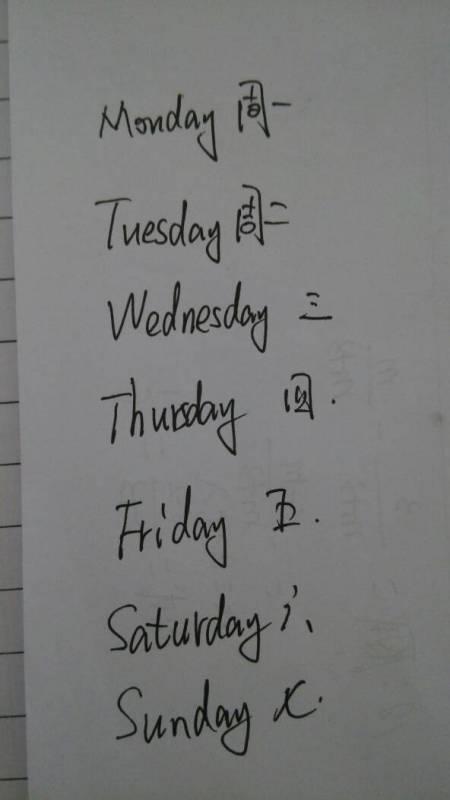 Monday 周一
Tuesday 周二
Wednesday 三
Thursday 四.
Friday 五.
Saturday 六、
Sunday